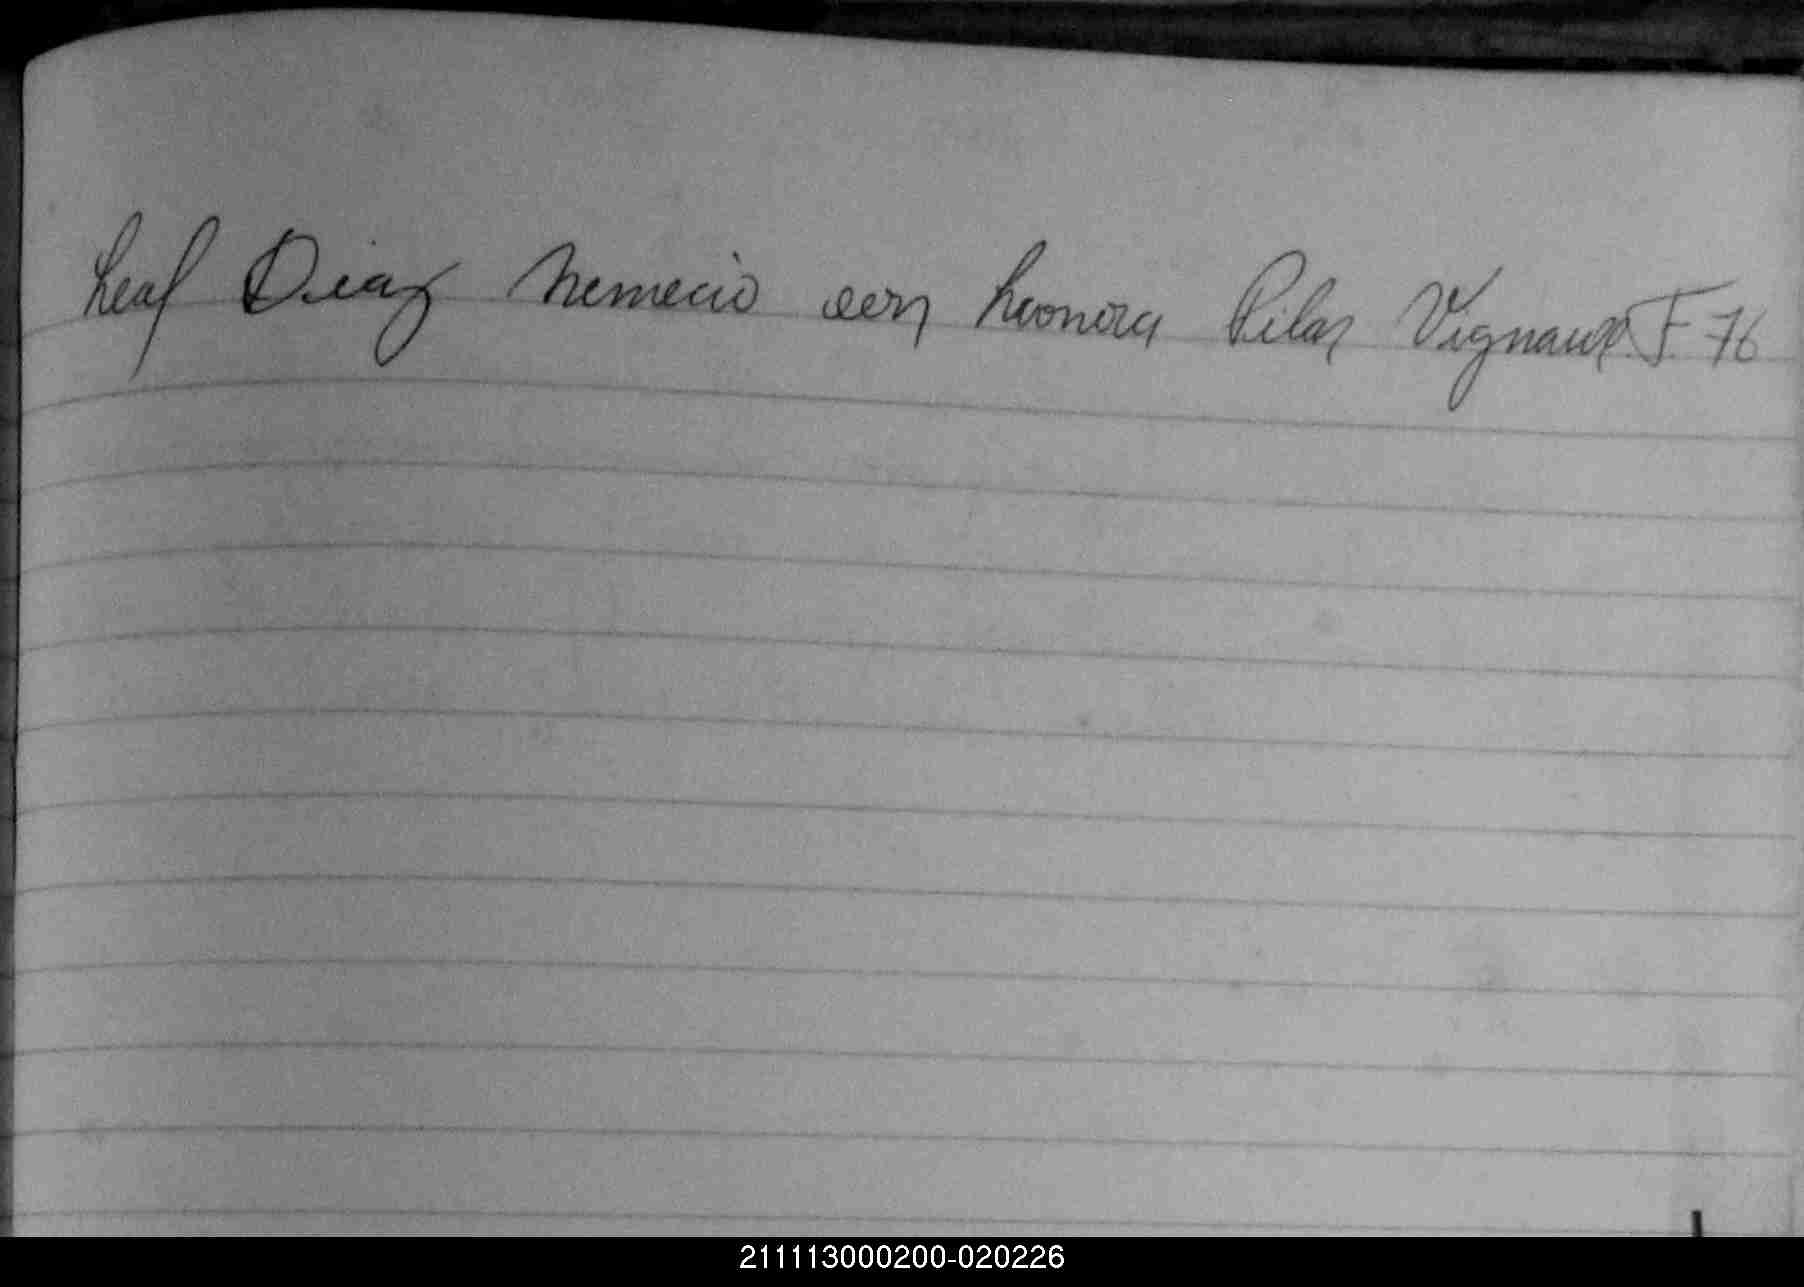 Leal Diaz Nemecio con Leonora Pilar Vignaux F. 76
211113000200-020226